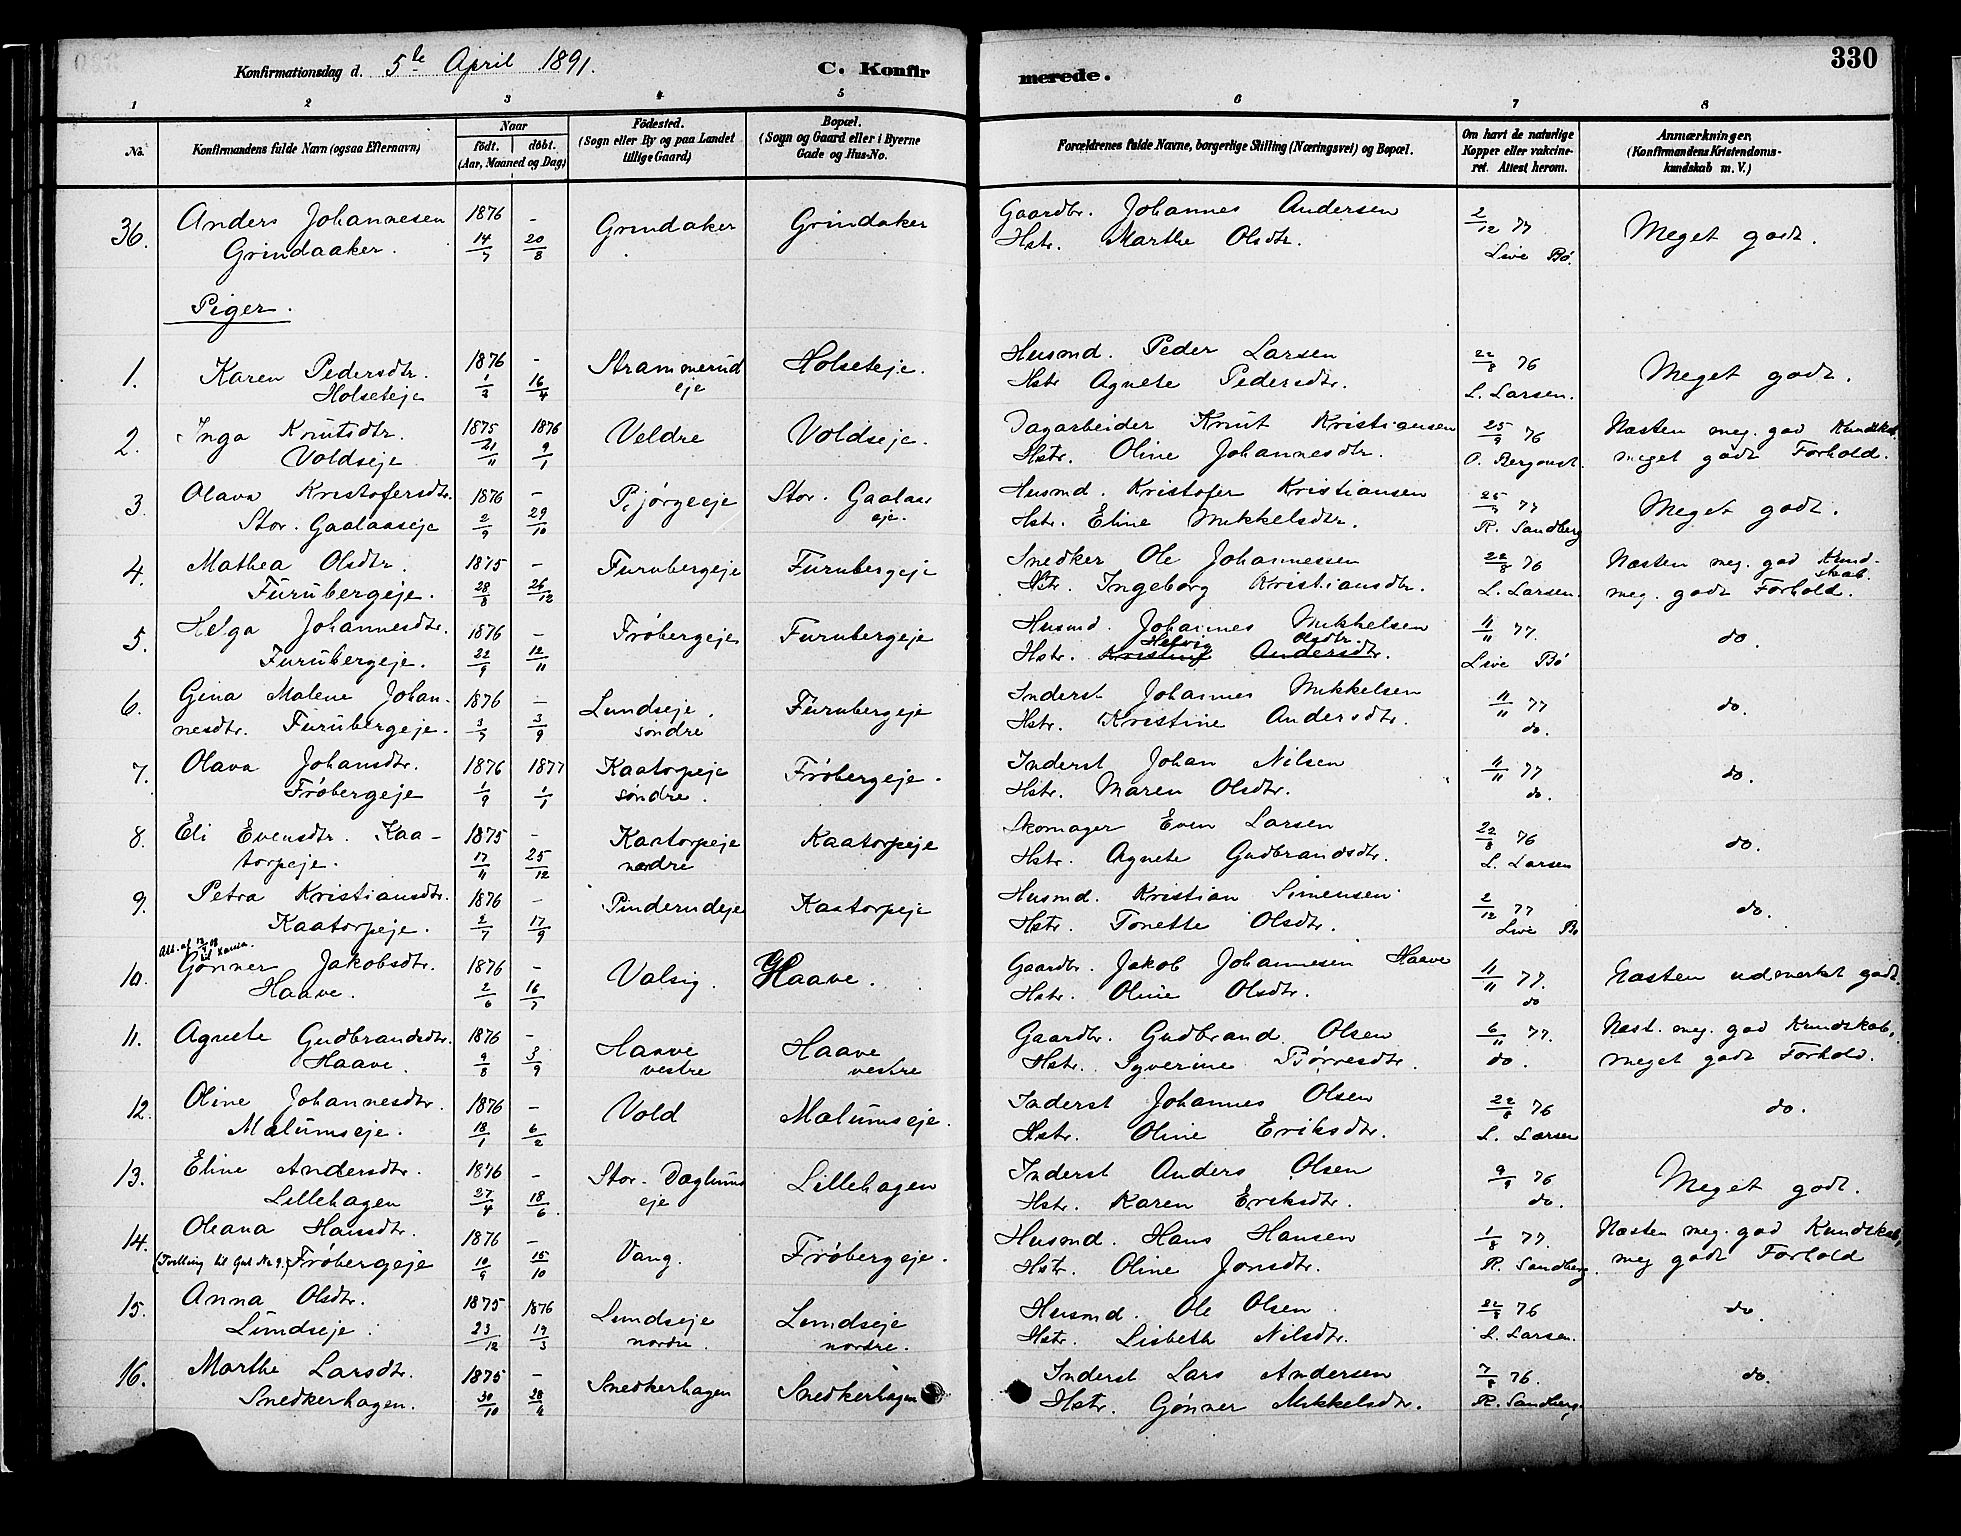 330
Konfirmationsdag d. 5te April 1891.
C. Konfir
merede.
1 2 3 4 5 6 7 8
No.
Konfirmandens fulde Navn (ogsaa Efternavn)
Naar
födt. döbt.
(Aar, Maaned og Dag)
Födested.
(Sogn eller By og paa Landet
tillige Gaard)
Bopæl.
(Sogn og Gaard eller i Byerne
Gade og Hus-No.
Forældrenes fulde Navne, borgerlige Stilling (Næringsvei) og Bopæl.
Om havt de naturlige
Kopper eller vakcine-
ret. Attest herom.
Anmærkninger.
(Konfirmandens Kristendoms-
kundskab m. V.)
36. Anders Johannesen 1876 - Grindaker Grindaker Gaardbr. Johannes Andersen 2/12 77 Meget godt.
Grindaaker. 14/7 20/8 Hstr. Marthe Olsdtr. Live Bö.
Piger.
1. Karen Pedersdtr. 1876 - Strammerud Holseteje. Husmd. Peder Larsen 22/8 76 Meget godt.
Holseteje 1/3 16/4 eje Hstr Agnete Pedersdtr. L. Larsen.
2. Inga Knutsdtr. 1875 1876 Veldre Voldseje. Dagarbeider Knut Kristiansen 25/9 76 Næsten meg. god Kundskab.
Voldseje 21/11 9/1 Hstr. Oline Johannesdtr. meget godt Forhold.
3. Olava Kristofersdtr. 1876 - Bjørgeeje Stor. Gaalaas Husmd. Kristofer Kristiansen 25/9 77 Meget godt.
Stor. Gaalaaseje 2/9 29/10 eje. Hstr. Eline Mikkelsdtr. R. Sandberg
4. Mathea Olsdtr. 1875 - Furubergeje Furubergeje Snedker Ole Johannessen 22/8 76 Næsten meg. god Kund-
skab.
Furubergeje. 28/8 26/12 Hstr. Ingeborg Kristiansdtr. L. Larsen. meg. godt Forhold.
5. Helga Johannesdtr. 1876 - Frøbergeje Furubergeje Husmd. Johannes Mikkelsen 11/11 77. do
Furubergeje. 22/9 12/11 Hstr. Kristine Andersdtr. Helvig Olsdtr. Live Bö
6. Gina Malene Johan- 1876 - Lundseje. Furubergeje Inderst Johannes Mikkelsen 11/11 77 do.
nesdtr. Furubergeje. 3/7 3/9 söndre Hstr. Kristine Andersdtr. do.
7. Olava Johansdtr. 1876 1877 Kaatorpeje Frøbergeje. Inderst Johan Nilsen 11/11 77 do.
Frøbergeje 1/9 1/1 söndre. Hstr. Maren Olsdtr. do.
8. Eli Evensdtr. Kaa- 1875 - Kaatorpeje Kaatorpeje Skomager Even Larsen 22/8 76 do.
torpeje. 17/11 25/12 nordre Hstr. Agnete Gudbrandsdtr. L. Larsen
9. Petra Kristiansdtr. 1876 - Pinderudeje Kaatorpeje Husmd. Kristian Simensen 2/12 77 do.
Kaatorpeje. 2/7 17/9 Hstr. Tonette Olsdtr. Live Bö
10. Gönner Jakobsdtr. 1876 - Valsig. Haave. Gaardbr. Jakob Johannesen Haave 11/11 77. Næsten udmerket godt.
Haave. 2/6 16/7 Hstr. Oline Olsdtr. do
11. Agnete Gudbrandsdtr. 1876 - Haave Haave Gaardbr. Gudbrand Olsen 6/11 77. Næst. meg. god Kundskab,
Haave. 9/8 3/9 vestre vestre Hstr. Syverine Børresdtr. do. meget godt Forhold.
12. Oline Johannesdtr. 1876 - Vold Malumseje. Inderst Johannes Olsen 22/8 76 do.
Malumseje. 18/1 6/2 Hstr. Oline Eriksdtr. L. Larsen
13. Eline Andersdtr. 1876 - Stor-Daglums Lillehagen Inderst Anders Olsen 9/9 76 Meget godt.
Lillehagen 27/4 18/6. eje Hstr. Karen Eriksdtr. do.
14. Oleana Hansdtr. 1876 - Vang. Frøbergeje. Husmd. Hans Hansen 1/8 77. Næsten meg. god Kundskab,
(Tvilling til Gut No 9.) Frøbergeje 10/9 15/10 Hstr. Oline Jonsdtr. R. Sandberg. meg godt Forhold
15. Anna Olsdtr. 1875 1876 Lundseje Lundseje Husmd. Ole Olsen 22/8 76 do
Lundseje. 23/12 19/3 nordre. nordre. Hstr. Lisbeth Nilsdtr. L. Larsen.
16. Marthe Larsdtr. 1875 - Snedkerhagen Snedkerhagen Inderst Lars Andersen 7/8 76. do.
Snedkerhagen. 30/10 28/4 Hstr. Gönner Mikkelsdtr. R. Sandberg.